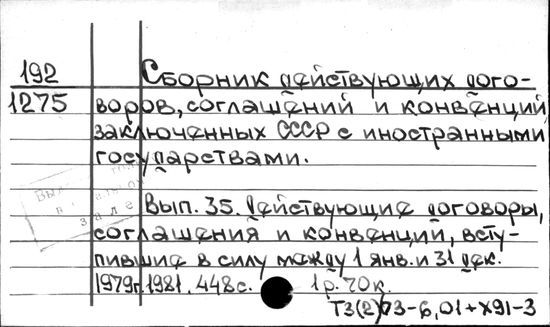 192
1275
Сборник действующих дого-
воров, соглашений и конвенций
заключенных СССР с иностранными
государствами.
Вып. 35. Действующие договоры,
соглашения и конвенции, всту-
пившие в силу между 1 янв. и 31 дек.
1979г. 1981. 448с. 1р. 70к.
Т3(2)73-6,01+Х91-3
зале